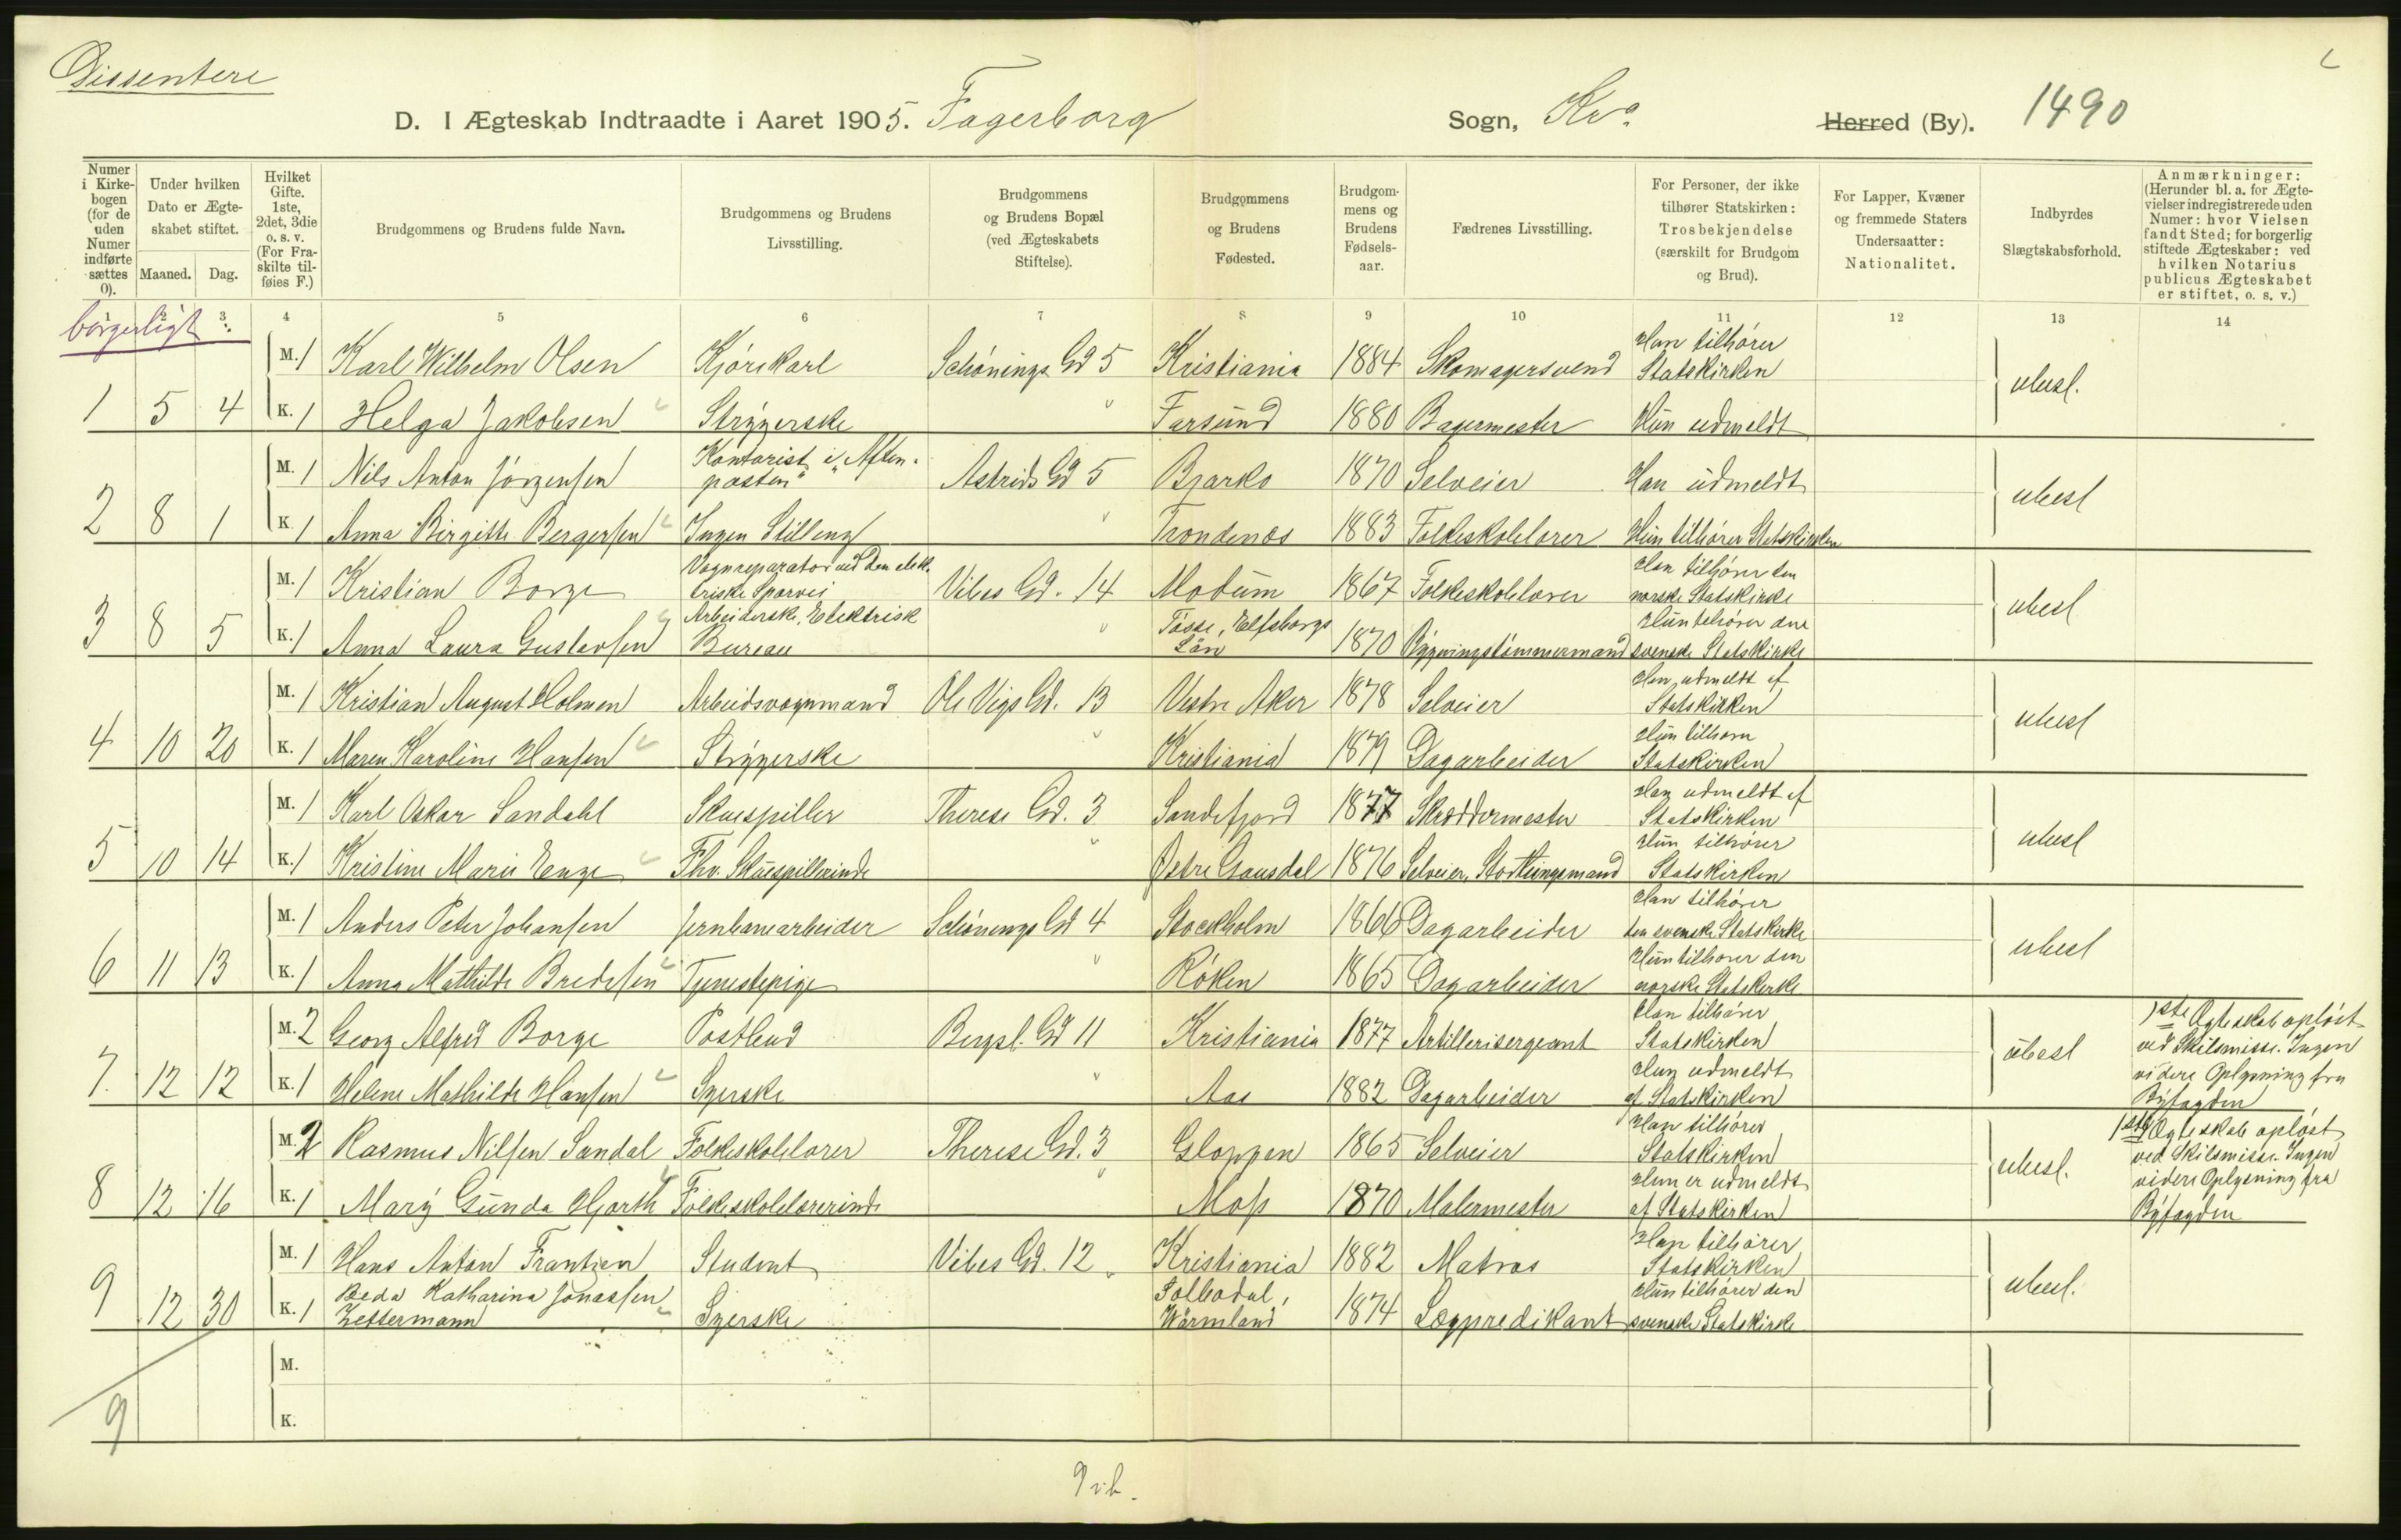 Dissentere
D. I Ægteskab Indtraadte i Aaret 1905. Fagerborg Sogn, Kra. Herred (By). 1490
Numer i Kirkebogen (for de uden Numer indførte sættes 0).
Under hvilken Dato er Ægteskabet stiftet.
Maaned. Dag.
Hvilket Gifte. 1ste, 2det, 3die o. s. v. (For Fraskilte tilføies F.)
Brudgommens og Brudens fulde Navn.
Brudgommens og Brudens Livsstilling.
Brudgommens og Brudens Bopæl (ved Ægteskabets Stiftelse).
Brudgommens og Brudens Fødested.
Brudgommens og Brudens Fødselsaar.
Fædrenes Livsstilling.
For Personer, der ikke tilhører Statskirken: Trosbekjendelse (særskilt for Brudgom og Brud).
For Lapper, Kvæner og fremmede Staters Undersaatter: Nationalitet.
Indbyrdes Slægtskabsforhold.
Anmærkninger: (Herunder bl. a. for Ægtevielser indregistrerede uden Numer: hvor Vielsen fandt Sted; for borgerlig stiftede Ægteskaber: ved hvilken Notarius publicus Ægteskabet er stiftet, o. s. v.)
3 4 5 6 7 8 9 10 11 12 13 14
borgerligt:
M. 1 Karl Wilhelm Olsen Kjørekarl Schønings Gd 5 Kristiania 1884 Skomagersvend Han tilhører Statskirken
1 5 4 K. 1 Helga Jakobsen Strygerske " Farsund 1880 Bagermester Hun udmeldt ubesl.
M. 1 Nils Anton Jörgensen Kontorist i „Aftenposten" Astrids Gd 5 Bjarkø 1870 Selveier Han udmeldt
2 8 1 K. 1 Anna Birgitte Bergersen Ingen Stilling " Trondenæs 1883 Folkeskolelærer Hun tilhører Statskirken ubesl
M. 1 Kristian Borge Vognreparatør ved den elektriske Sporvei Vibes Gd. 14 Modum 1867 Folkeskolelærer Han tilhører den norske Statskirke
3 8 5 K. 1 Anna Laura Gustavsen Arbeiderske, Elektrisk Bureau " Tösse, Elfsborgs Län 1870 Bygningstömmermand Hun tilhører den svenske Statskirke ubesl
M. 1 Kristian August Holmen Arbeidsvognmand Ole Vigs Gd. 13 Vestre Aker 1878 Selveier Han udmeldt af Statskirken
4 10 20 K. 1 Maren Karoline Hansen Strygerske " Kristiania 1879 Dagarbeider Hun tilhører Statskirken ubesl
M. 1 Karl Oskar Sandahl Skuespiller Therese Gd. 3 Sandefjord 1877 Skræddermester Han udmeldt af Statskirken
5 10 14 K. 1 Kristine Marie Enge Fhv. Skuespillerinde " Østre Gausdal 1876 Selveier, Storthingsmand Hun tilhører Statskirken ubesl
M. 1 Anders Peter Johansen Jernbanearbeider Schønings Gd 4 Stockholm 1866 Dagarbeider Han tilhører den svenske Statskirke
6 11 13 K. 1 Anna Mathilde Bredesen Tjenestepige " Røken 1865 Dagarbeider Hun tilhører den norske Statskirke ubesl
M. 2 Georg Alfred Borge Postbud Bergsl. Gd 11 Kristiania 1877 Artillerisergeant Han tilhører Statskirken
7. 12 12 K. 1 Helene Mathilde Hansen Syerske " Aas 1882 Dagarbeider Hun udmeldt af Statskirken ubesl 1ste Ægteskab opløst ved Skilsmisse. Ingen videre Oplysning fra Byfogden
M. 2 Rasmus Nilsen Sandal Folkeskolelærer Therese Gd. 3 Gloppen 1865 Selveier Han tilhører Statskirken
8 12 16 K. 1 Mary Gunda Hjorth Folkeskolelærerinde " Moss 1870 Malermester Hun er udmeldt af Statskirken ubesl. 1ste Ægteskab opløst ved Skilsmisse. Ingen videre Oplysning fra Byfogden
M. 1 Hans Anton Frantzen Student Vibes Gd. 12 Kristiania 1882 Matros Han tilhører Statskirken
9 12 30 K. 1 Beda Katharina Jonassen Zettermann Syerske " Wärmland 1874 Lægpredikant Hun tilhører den svenske Statskirke ubesl.
M.
9 K.
9 vib.